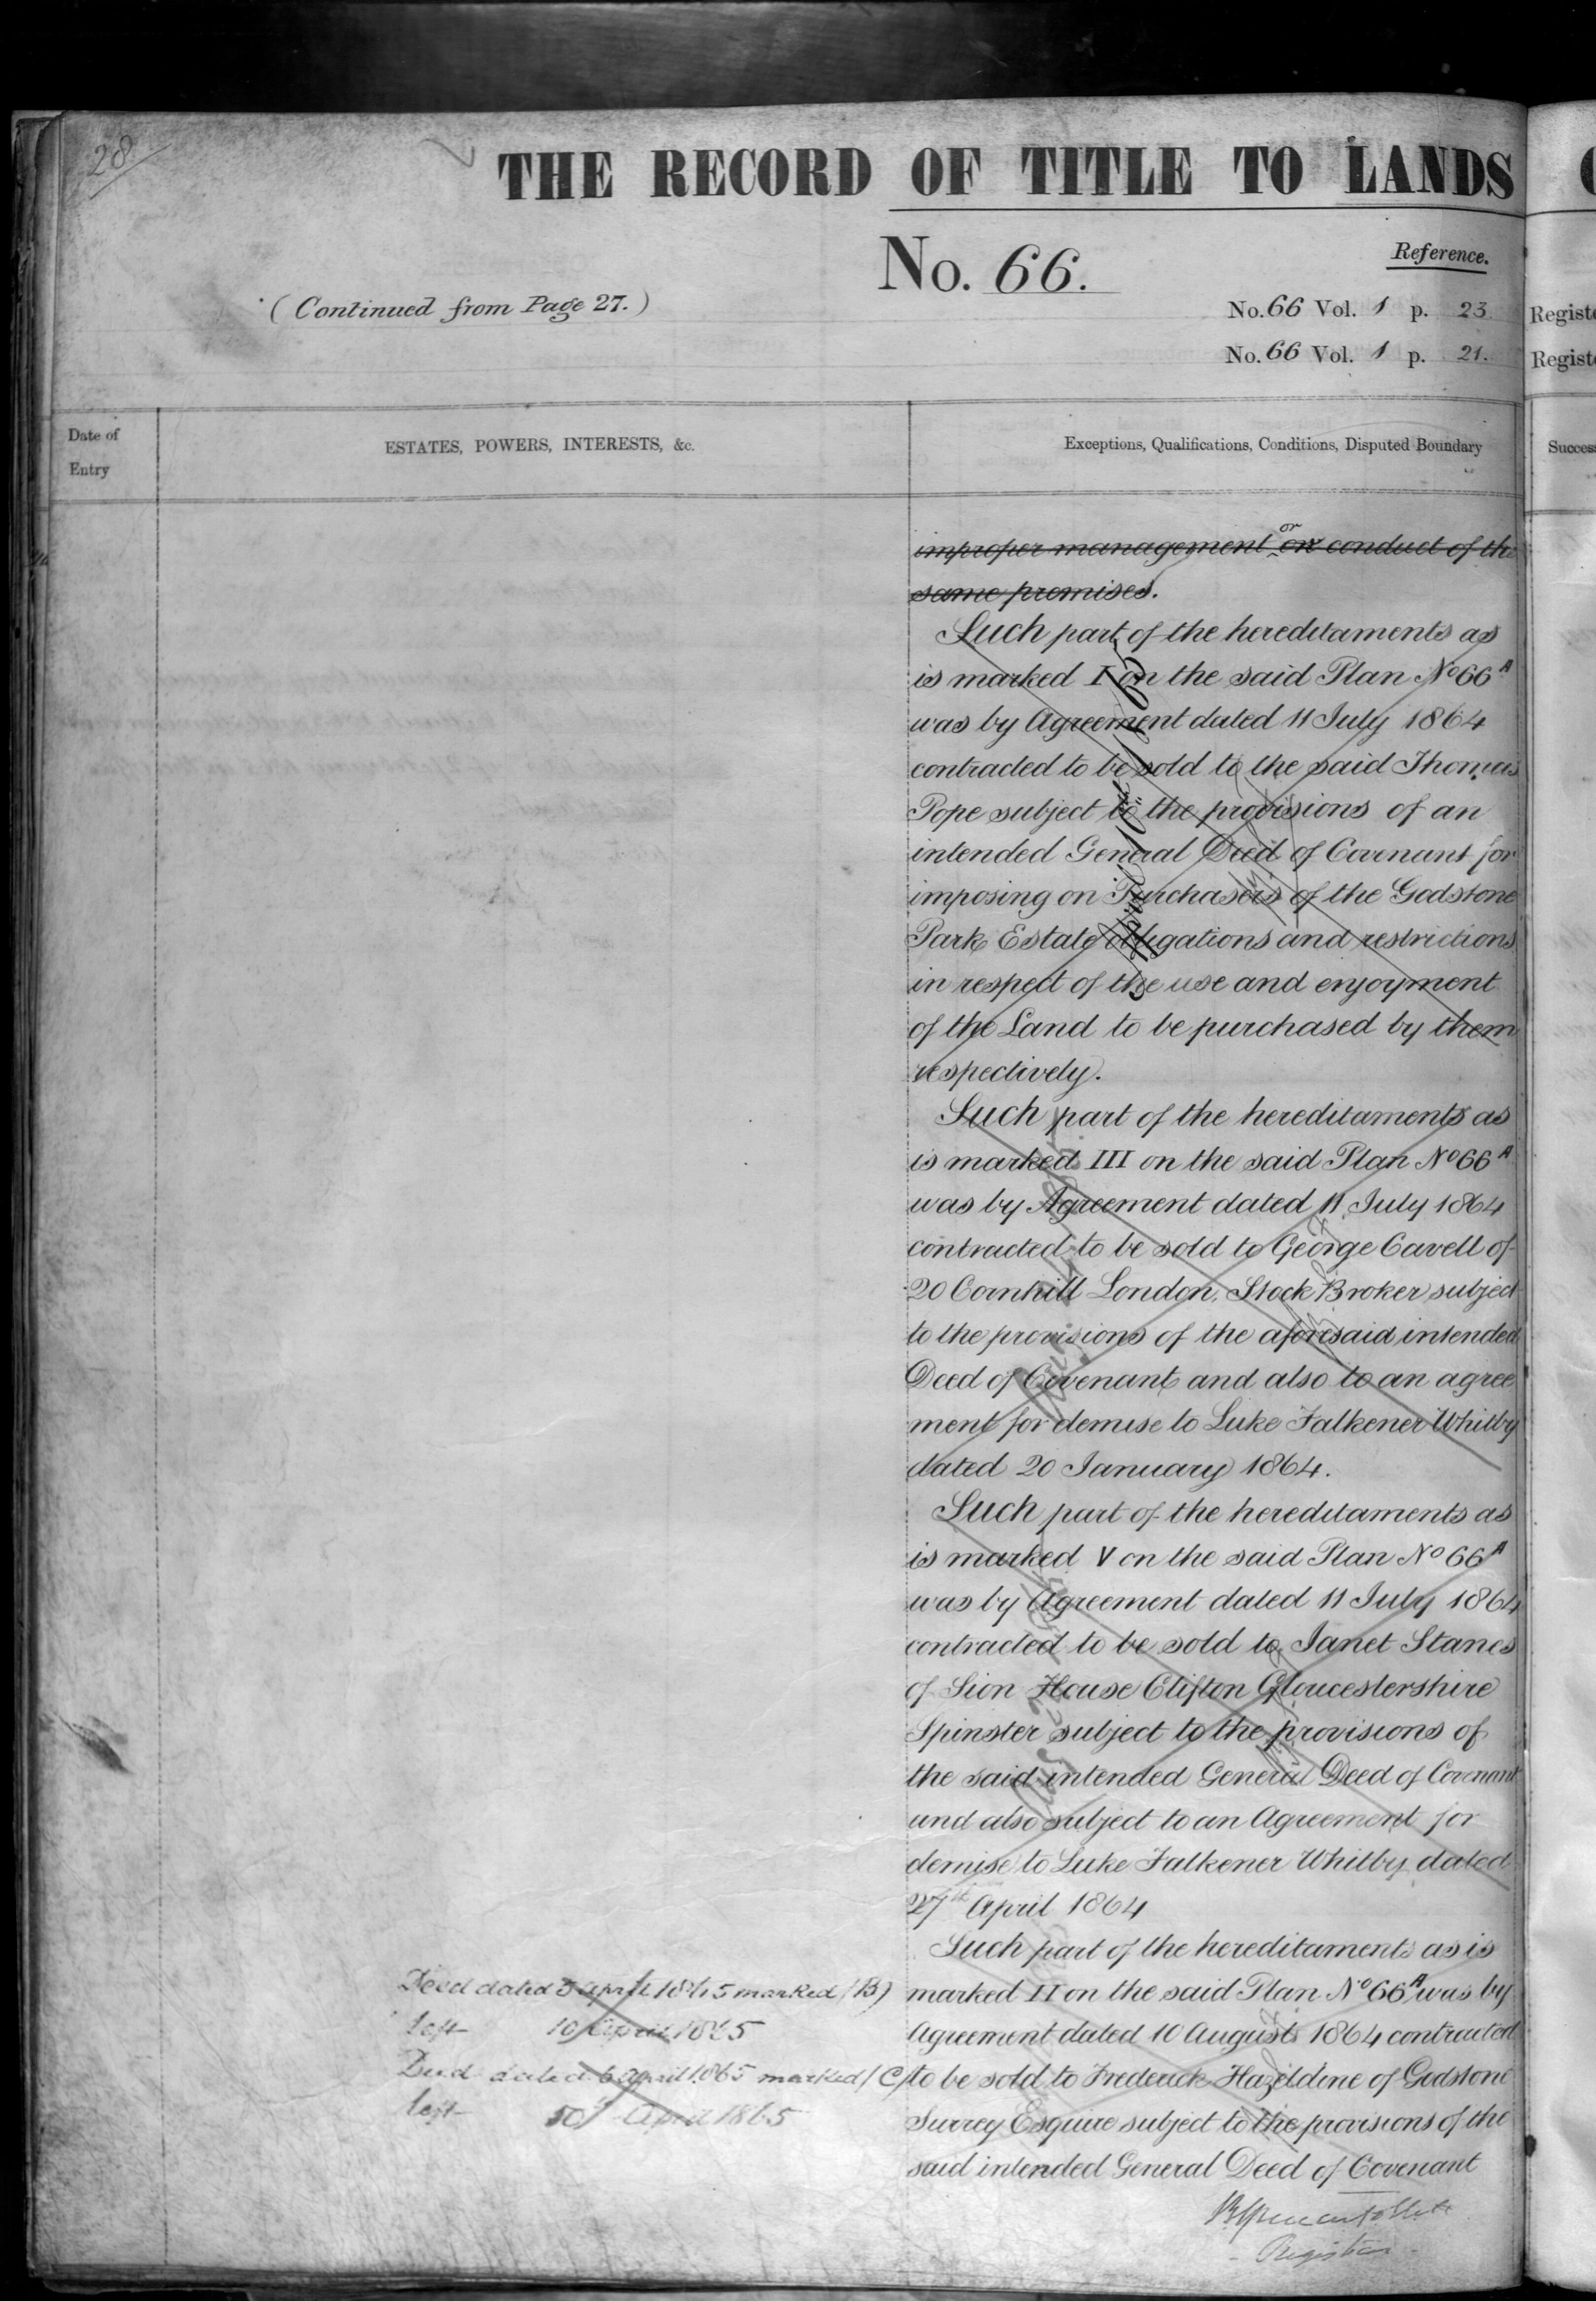 28
THE RECORD OF TITLE TO LANDS
No. 66.
Reference.
(Continued from Page 27.)
No. 66 Vol. 1 p. 23.
Regist
No. 66 Vol. 1 p. 21.
Regist
Date of
Entry
ESTATES, POWERS, INTERESTS, &c.
Exceptions, Qualifications, Conditions, Disputed Boundary
Success
or
improper management on conduct of the
same premises.
Such part of the hereditaments as
is marked I on the said Plan No 66 A
was by Agreement dated 11 July 1864
contracted to be sold to the said Thomas
Pope subject to the provisions of an
intended General Deed of Covenant for
imposing on Purchasers of the Godstone
Park Estate obligations and restrictions
in respect of the use and enjoyment
of the Land to be purchased by them
respectively.
Such part of the hereditaments as
is marked III on the said Plan No 66 A
was by Agreement dated 11 July 1864
contracted to be sold to George Cavell of
20 Cornhill London, Stock Broker subject
to the provisions of the aforesaid intended
Deed of Covenant and also to an agree
ment for demise to Luke Falkener Whitby
dated 20 January 1864.
Such part of the hereditaments as
is marked V on the said Plan No 66 A
was by Agreement dated 11 July 1864
contracted to be sold to Janet Stanes
of Sion House Clifton Gloucestershire
Spinster subject to the provisions of
the said intended General Deed of Covenant
and also subject to an Agreement for
demise to Luke Falkener Whitby dated
27th April 1864
Such part of the hereditaments as is
Deed dated 5 April 1865 marked (B)
marked II on the said Plan No 66 A was by
left 10 April 1865
Agreement dated 10 August 1864 contracted
Deed dated 6 April 1865 marked (C)
to be sold to Frederick Hazeldine of Godstone
left April 1865
Surrey Esquire subject to the provisions of the
said intended General Deed of Covenant
Registrar